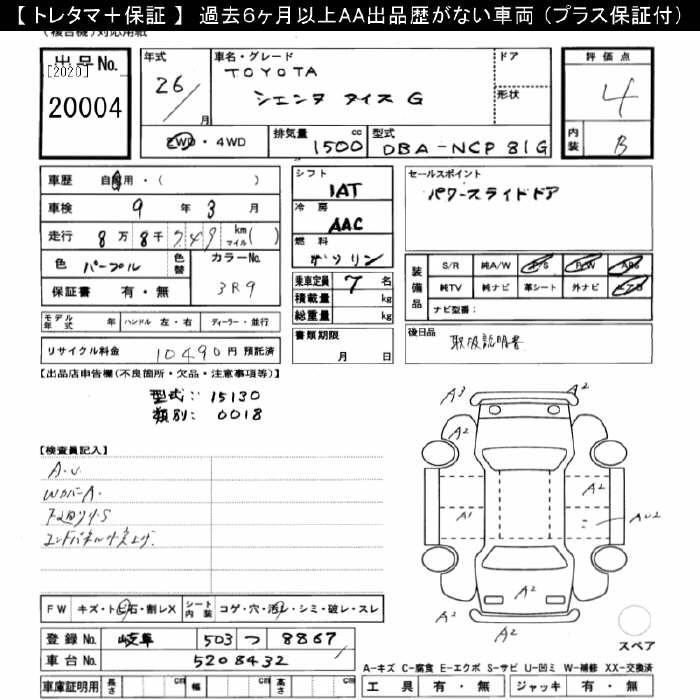 【 トレタマ＋保証 】 過去６ヶ月以上AA出品歴がない車両（プラス保証付）
(複合機)対応用紙
出品No.
[2020]
20004
年式
26/
月
車名・グレード
TOYOTA
シエンタ ダイス G
ドア
形状
評価点
4
内装
B
2WD・4WD
排気量
1500 cc
型式
DBA-NCP 81G
車歴 自家用・( )
車検 9 年 3 月
走行 8万 8千 749 km マイル( )
色 パープル
色替
カラーNo.
3R9
保証書 有・無
シフト
1AT
冷房
AAC
燃料
ガソリン
乗車定員 7 名
積載量 kg
総重量 kg
セールスポイント
パワースライドドア
装備品
S/R 純A/W P/S P/W ABS
純TV 純ナビ 革シート 外ナビ エアB
ナビ型番：
モデル年式 年 ハンドル 左・右 ディーラー・並行
リサイクル料金 10490 円 預託済
書類期限
月 日
後日品
取扱説明書
【出品店申告欄(不良箇所・欠品・注意事項等)】
型式： 15130
類別： 0018
【検査員記入】
A.U.
WカバーA.
下廻りサS
エンドパネル小突上げ.
A3
A2
A2
A2
A2
A1
AU2
A2
A2
スペア
FW キズ・トビ石・割レX
シート内装 コゲ・穴・汚レ・シミ・破レ・スレ
登録 No. 岐阜 503 つ 8867
車台 No. 5208432
A−キズ C−腐食 E−エクボ S−サビ U−凹ミ W−補修 XX−交換済
車庫証明用 長さ cm 幅 cm 高さ cm
工具 有・無 ジャッキ 有・無